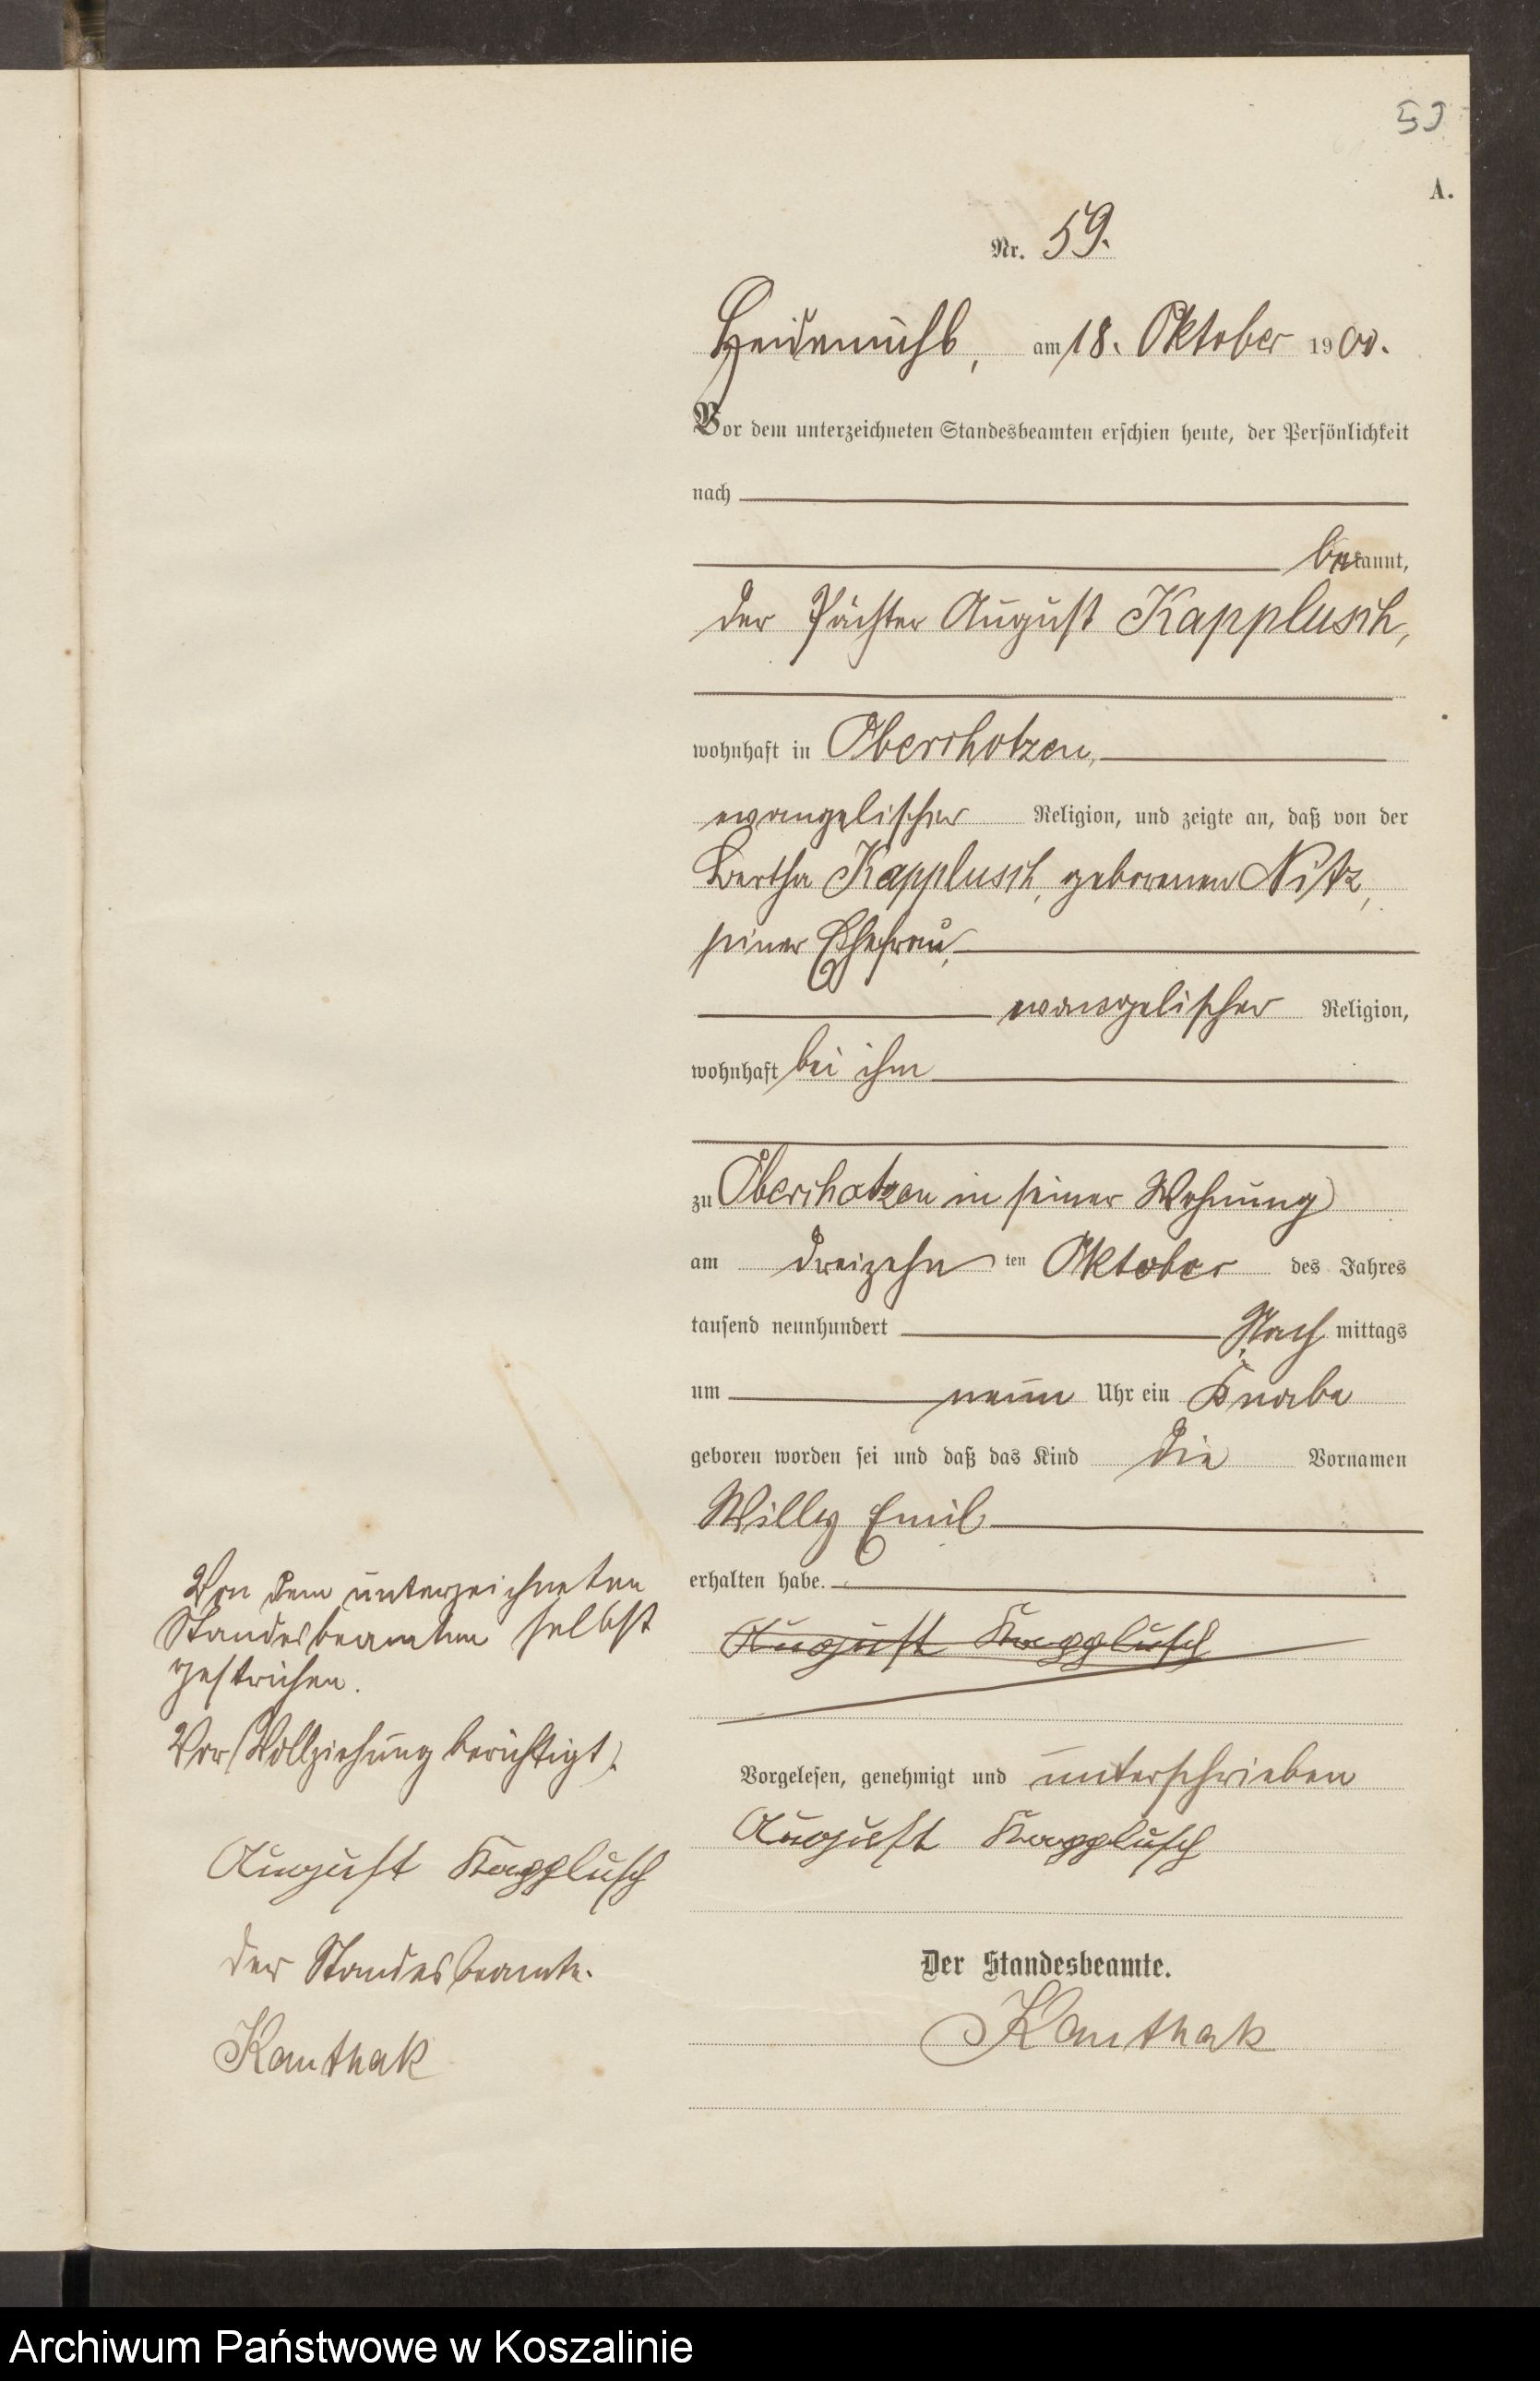 59
A.
Nr. 59.
Heidemühl, am 18. Oktober 1900.
Vor dem unterzeichneten Standesbeamten erschien heute, der Persönlichkeit
nach
bekannt,
der Pächter August Kapplusch,
wohnhaft in Oberschotzen,
evangelischer Religion, und zeigte an, daß von der
Bertha Kapplusch, geborenen Nitz,
seiner Ehefrau,
evangelischer Religion,
wohnhaft bei ihm
zu in seiner Wohnung
am dreizehn ten Oktober des Jahres
tausend neunhundert Nach mittags
um neun Uhr ein Knabe
geboren worden sei und daß das Kind die Vornamen
Willy Emil
erhalten habe.
August Kapplusch
Vorgelesen, genehmigt und unterschrieben
August Kapplusch
Der Standesbeamte.
Kanthak
Von dem unterzeichneten
Standesbeamten selbst
gestrichen.
Vor Vollziehung berichtigt.
August Kapplusch
der Standesbeamte.
Kanthak
Archiwum Państwowe w Koszalinie